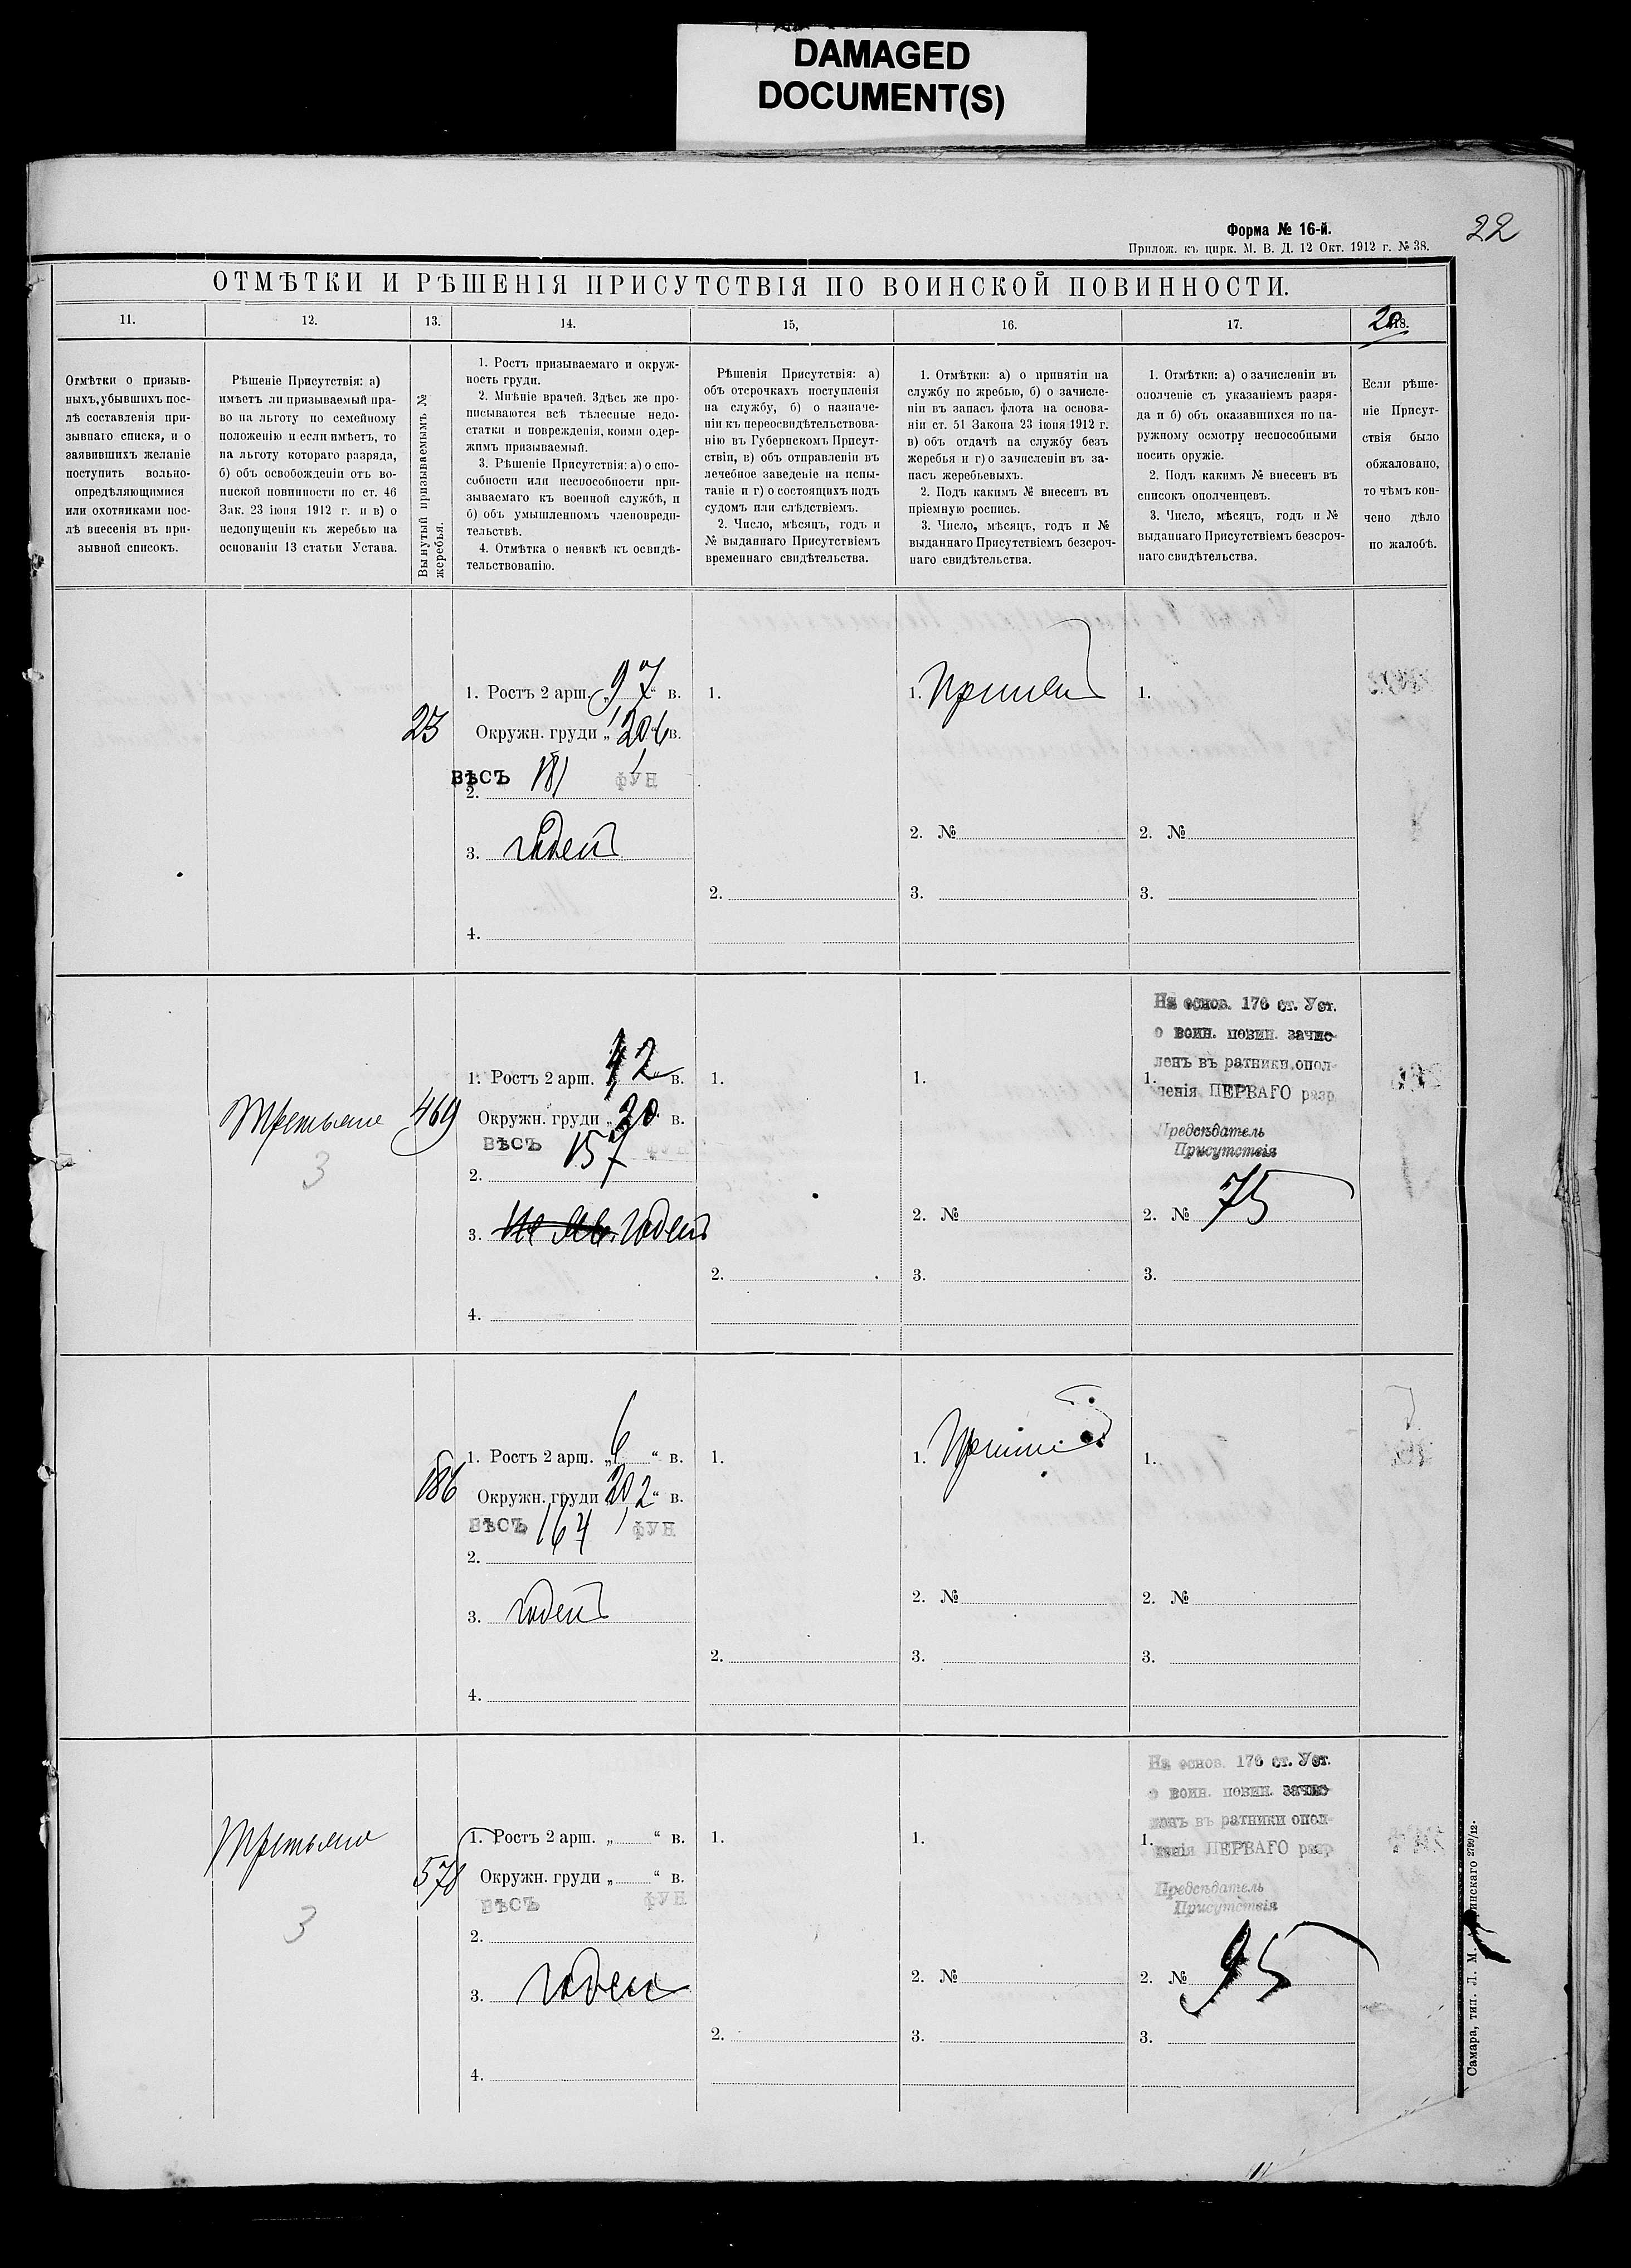 DAMAGED
DOCUMENT(S)
22
Форма № 16-й.
Прилож. къ цирк. М. В. Д. 12 Окт. 1912 г. № 38.
ОТМѢТКИ И РѢШЕНІЯ ПРИСУТСТВІЯ ПО ВОИНСКОЙ ПОВИННОСТИ.
11.
12.
13.
14.
15,
16.
17.
20
18.
Отмѣтки о призыв-
ныхъ, убывшихъ пос-
лѣ составленія при-
зывнаго списка, и о
заявившихъ желаніе
поступить вольно-
опредѣляющимися
или охотниками пос-
лѣ внесенія въ при-
зывной списокъ.
Рѣшеніе Присутствія: а)
имѣетъ ли призываемый пра-
во на льготу по семейному
положенію и если имѣетъ, то
на льготу котораго разряда,
б) объ освобожденіи отъ во-
инской повинности по ст. 46
Зак. 23 іюня 1912 г. и в) о
недопущеніи къ жеребью на
основаніи 13 статьи Устава.
Вынутый призываемымъ №
жеребья.
1. Ростъ призываемаго и окруж-
ность груди.
2. Мнѣніе врачей. Здѣсь же про-
писываются всѣ тѣлесные недо-
статки и поврежденія, коими одер-
жимъ призываемый.
3. Рѣшеніе Присутствія: а) о спо-
собности или неспособности при-
зываемаго къ военной службѣ, и
б) объ умышленномъ членовреди-
тельствѣ.
4. Отмѣтка о неявкѣ къ освидѣ-
тельствованію.
Рѣшенія Присутствія: а)
объ отсрочкахъ поступленія
на службу, б) о назначе-
ніи къ переосвидѣтельствова-
нію въ Губернскомъ Присут-
ствіи, в) объ отправленіи въ
лечебное заведеніе на испы-
таніе и г) о состоящихъ подъ
судомъ или слѣдствіемъ.
2. Число, мѣсяцъ, годъ и
№ выданнаго Присутствіемъ
временнаго свидѣтельства.
1. Отмѣтки: а) о принятіи на
службу по жребью, б) о зачисле-
ніи въ запасъ флота на основа-
ніи ст. 51 Закона 23 іюня 1912 г.
в) объ отдачѣ на службу безъ
жеребья и г) о зачисленіи въ за-
пасъ жеребьевыхъ.
2. Подъ какимъ № внесенъ въ
пріемную роспись.
3. Число, мѣсяцъ, годъ и №
выданнаго Присутствіемъ безсроч-
наго свидѣтельства.
1. Отмѣтки: а) о зачисленіи въ
ополченіе съ указаніемъ разря-
да и б) объ оказавшихся по на-
ружному осмотру неспособными
носить оружіе.
2. Подъ какимъ № внесенъ въ
списокъ ополченцевъ.
3. Число, мѣсяцъ, годъ и №
выданнаго Присутствіемъ безсроч-
наго свидѣтельства.
Если рѣше-
ніе Присут-
ствія было
обжаловано,
то чѣмъ кон-
чено дѣло
по жалобѣ.
23
1. Ростъ 2 арш. 97 в.
Окружн. груди „ 20 6 в.
ВѢСЪ 181 ФУН
2.
3. годенъ
4.
1.
2.
1. Принятъ
2. №
3.
1.
2. №
3.
Третьяго
3
469
1. Ростъ 2 арш. 2 в.
Окружн. груди „ 20 в.
ВѢСЪ 157 ФУН
2.
3. Не Яв. годенъ
4.
1.
2.
1.
2. №
3.
На основ. 176 ст. Уст.
о воин. повин. зачис-
ленъ въ ратники опол-
1. ченія ПЕРВАГО разр
Предсѣдатель
Присутствія
2. № 75
3.
186
1. Ростъ 2 арш. „ 6 “ в.
Окружн. груди 20 2 “ в.
ВѢСЪ 164 ФУН
2.
3. годенъ
4.
1.
2.
1. Принятъ
2. №
3.
1.
2. №
3.
Третьяго
3
578
1. Ростъ 2 арш. „ “ в.
Окружн. груди „ “ в.
ВѢСЪ ФУН
2.
3. годенъ
4.
1.
2.
1.
2. №
3.
На основ. 176 ст. Уст.
о воин. повин. зачис-
ленъ въ ратники опол-
1. ченія ПЕРВАГО разр
Предсѣдатель
Присутствія
2. № 95
3.
Самара, тип. Л. М. 2799/12.